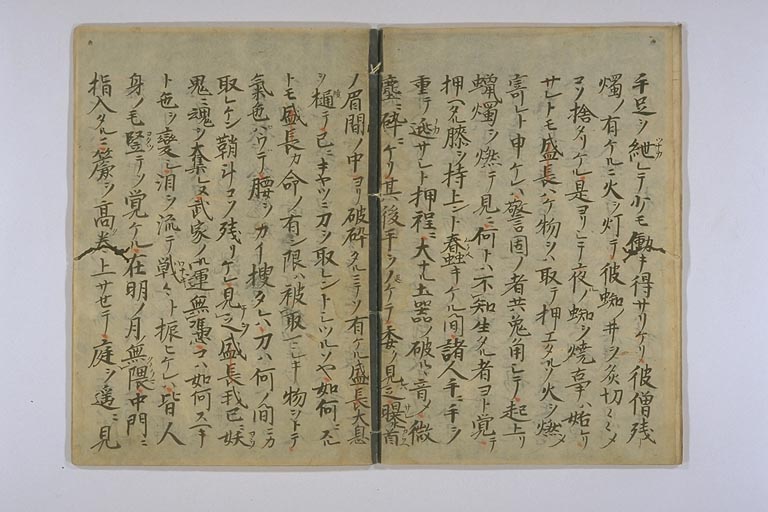 手足ヲ紲レテ少モ働キ得サリケリ彼僧残
燭ノ有ケルニ火ヲ灯テ彼蜘ノ井ヲ炙切々々メ
コソ捨タリケル是ヨリシテ夜ノ蜘ヲ焼事ハ始レリ
サレトモ盛長ハケ物ヲハ取テ押エタルソ火ヲ燃メ
寄レト申ケレハ警固ノ者共兎角シテ起上リ
蝋燭ヲ燃テ見ニ何トハ不知生タル者ヨト覚テ
押ヘタル膝ヲ持上ント蠢キケル間諸人手ニ手ヲ
重テ逃サシト押程ニ大ナル土器ノ破ルヽ音ノ微
塵ニ砕ニケリ其後手ヲノケテ委ク見之曝首
ノ眉間ノ中ヨリ破砕タルニテソ有ケル盛長大息
ヲ樋テ已ニキヤツニ刀ヲ取レントシツルソヤ如何ニスル
トモ盛長カ命ノ有ン限ハ被取マシキ物ヲトテ
氣色ハウテ腰ヲカイ捜タレハ刀ハ何ノ間ニカ
取レケン鞘斗コソ残リケレ見之盛長我已ニ妖
鬼ニ魂ヲ奪レヌ武家ノ運無憑コハ如何スヘキ
ト色ヲ変シ泪ヲ流テ戦ヽト振ヒケレハ皆人
身ノ毛竪テソ覚ケル在明ノ月無隈中門ニ
指入タルニ簾ヲ高巻上サセテ庭ヲ遥ニ見